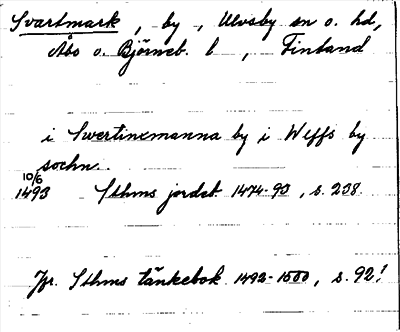 Svartmark, by, Ulvsby sn o. hd,
Åbo o. Björneb. l, Finland
i Swertinemanna by i Weffs by
sochn.
10/6
1493 Sthms jordeb. 1474-93, s. 238.
Jfr. Sthms tänkebok 1492-1500, s. 92!